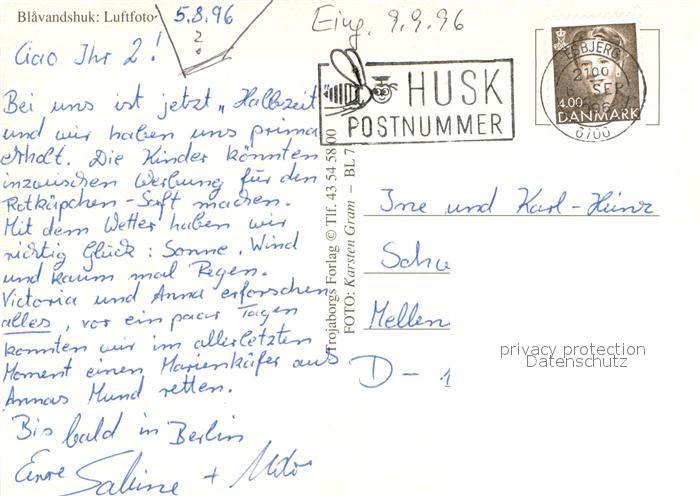 Blåvandshuk: Luftfoto
5.8.96
?
Eing. 9.9.96
Ciao Ihr 2!
Bei uns ist jetzt „Halbzeit"
und wir haben uns prima
erholt. Die Kinder könnten
inzwischen Werbung für den
Rotkäpchen-Saft machen.
Mit dem Wetter haben wir
richtig Glück: Sonne, Wind
und kaum mal Regen.
Victoria und Anna erforschen
alles, vor ein paar Tagen
konnten wir im allerletzten
Moment einen Marienkäfer aus
Annas Mund retten.
Bis bald in Berlin
Eure Sabine + Udo
Trojaborgs Forlag © Tlf. 43 54 58 00
FOTO: Karsten Gram – BL 7
HUSK
POSTNUMMER
ESBJERG
2100
6 SEP
6700
4.00
DANMARK
Ine und Karl-Heinz
Schu
Mellen
D - 1
privacy protection
Datenschutz